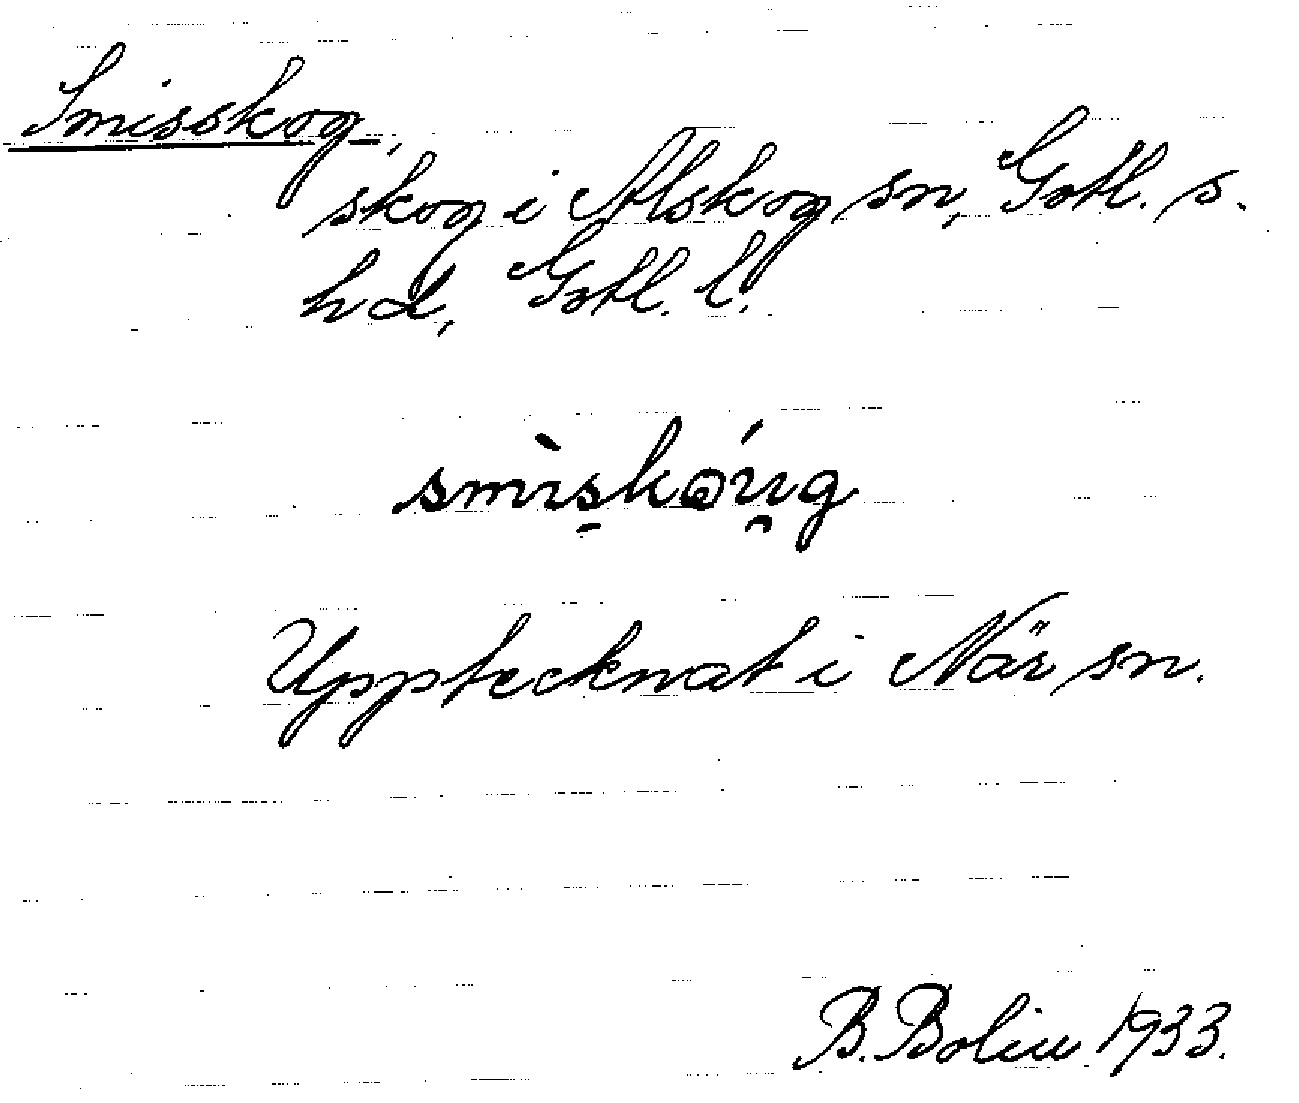 Smisskog,
skog i Alskog sn, Gotl. s.
hd, Gotl. l.
smìs̱kǝ́u̯g
Upptecknat i När sn.
B. Bolin 1933.